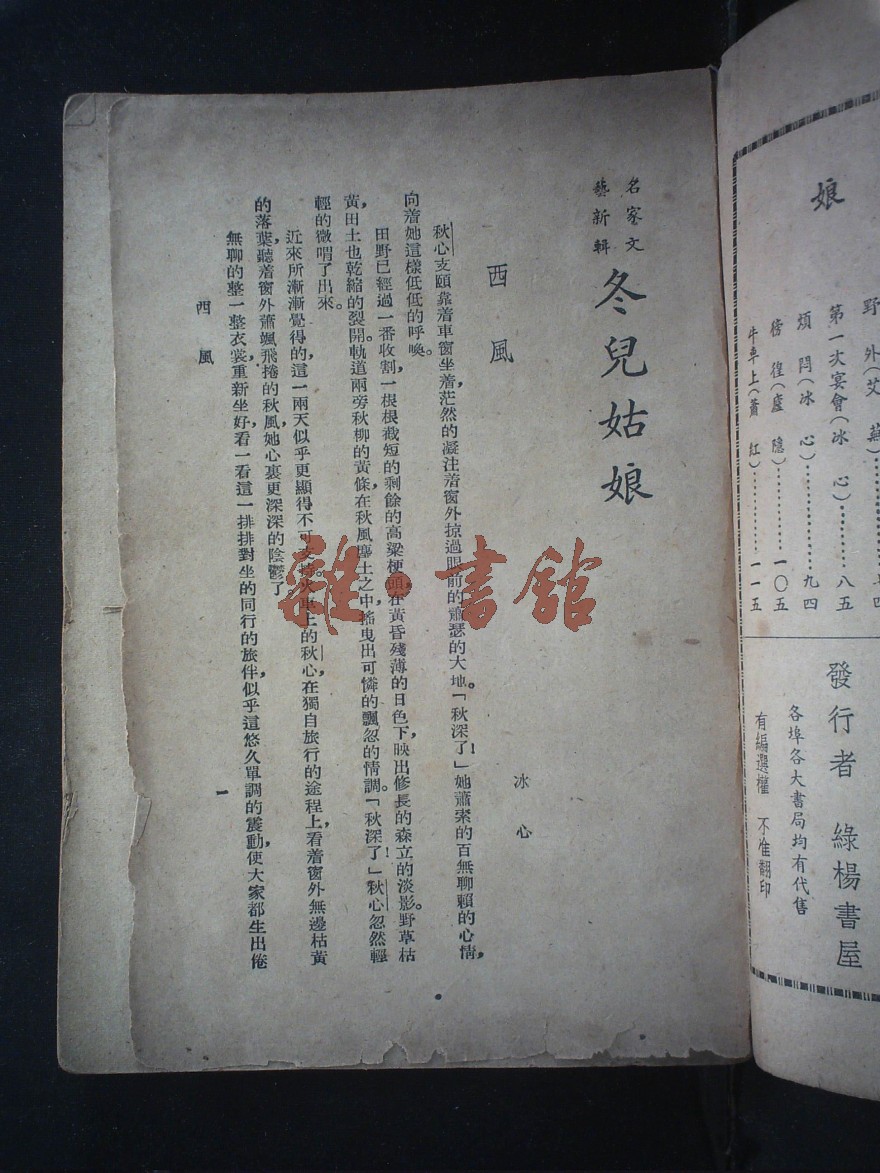 娘
野外(艾蕪)
第一次宴會(冰心)………八五
煩悶(冰心)………九四
徬徨(廬隱)………一〇五
牛車上(蕭紅)………一一五
發行者 綠楊書屋
各埠各大書局均有代售
有編選權 不准翻印
名家文
藝新輯
冬兒姑娘
西風
冰心
秋心支頤靠着車窗坐着茫然的凝注着窗外掠過眼前的蕭瑟的大地。「秋深了!」她蕭索的百無聊賴的心情,
向着她這樣低低的呼喚。
田野已經過一番收割,一根根截短的剩餘的高粱梗頭,在黃昏殘薄的日色下,映出修長的森立的淡影。野草枯
黃,田土也乾縮的裂開。軌道兩旁秋柳的黃條在秋風塵土之中,搖曳出可憐的飄忽的情調。「秋深了!」秋心忽然輕
輕的微喟了出來。
近來所漸漸覺得的,這一兩天似乎更顯得不可支持。火車上的秋心,在獨自旅行的途程上,看着窗外無邊枯黃
的落葉,聽着窗外蕭颯飛捲的秋風,她心裏更深深的陰鬱了
無聊的整一整衣裳,重新坐好,看一看這一排排對坐的同行的旅伴,似乎這悠久單調的震動,使大家都生出倦
西風
一
雜·書館